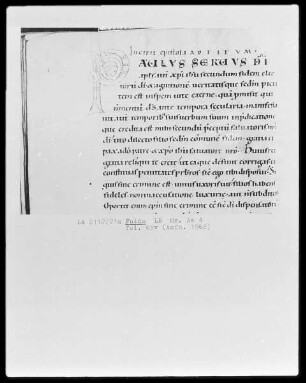 Incipit epistola ad titum
PAULUS SERVUS DI
apis aut xpi ihu secundum fidem elec
torum di & agnitione veritatis que secdm pie
tatem est inspem vite eterne qua promisit qui
non mentit ds ante tempora secularia manifesta
vit aut temporib suis verbum suum in predicatione
que credita est mihi secundu preceptu salvatoris nri
di tito dilecto filio secdm comune fidem gratia et
pax a do patre et xpo ihu salvatore nro huius rei
gratia reliqui te crete ut ea que desunt corrigas et
constituas per civitates prbros sic ego tibi disposui Si
quis sine crimine est unius uxoris vir filios habens
fideles non in accusatione luxurie aut n subditos
Oportet enim epm sine crimine esse sic di dispensatore
LA 2112/27a Fulda LB Hs. Aa 4
Fol. (Aufn. 1968)